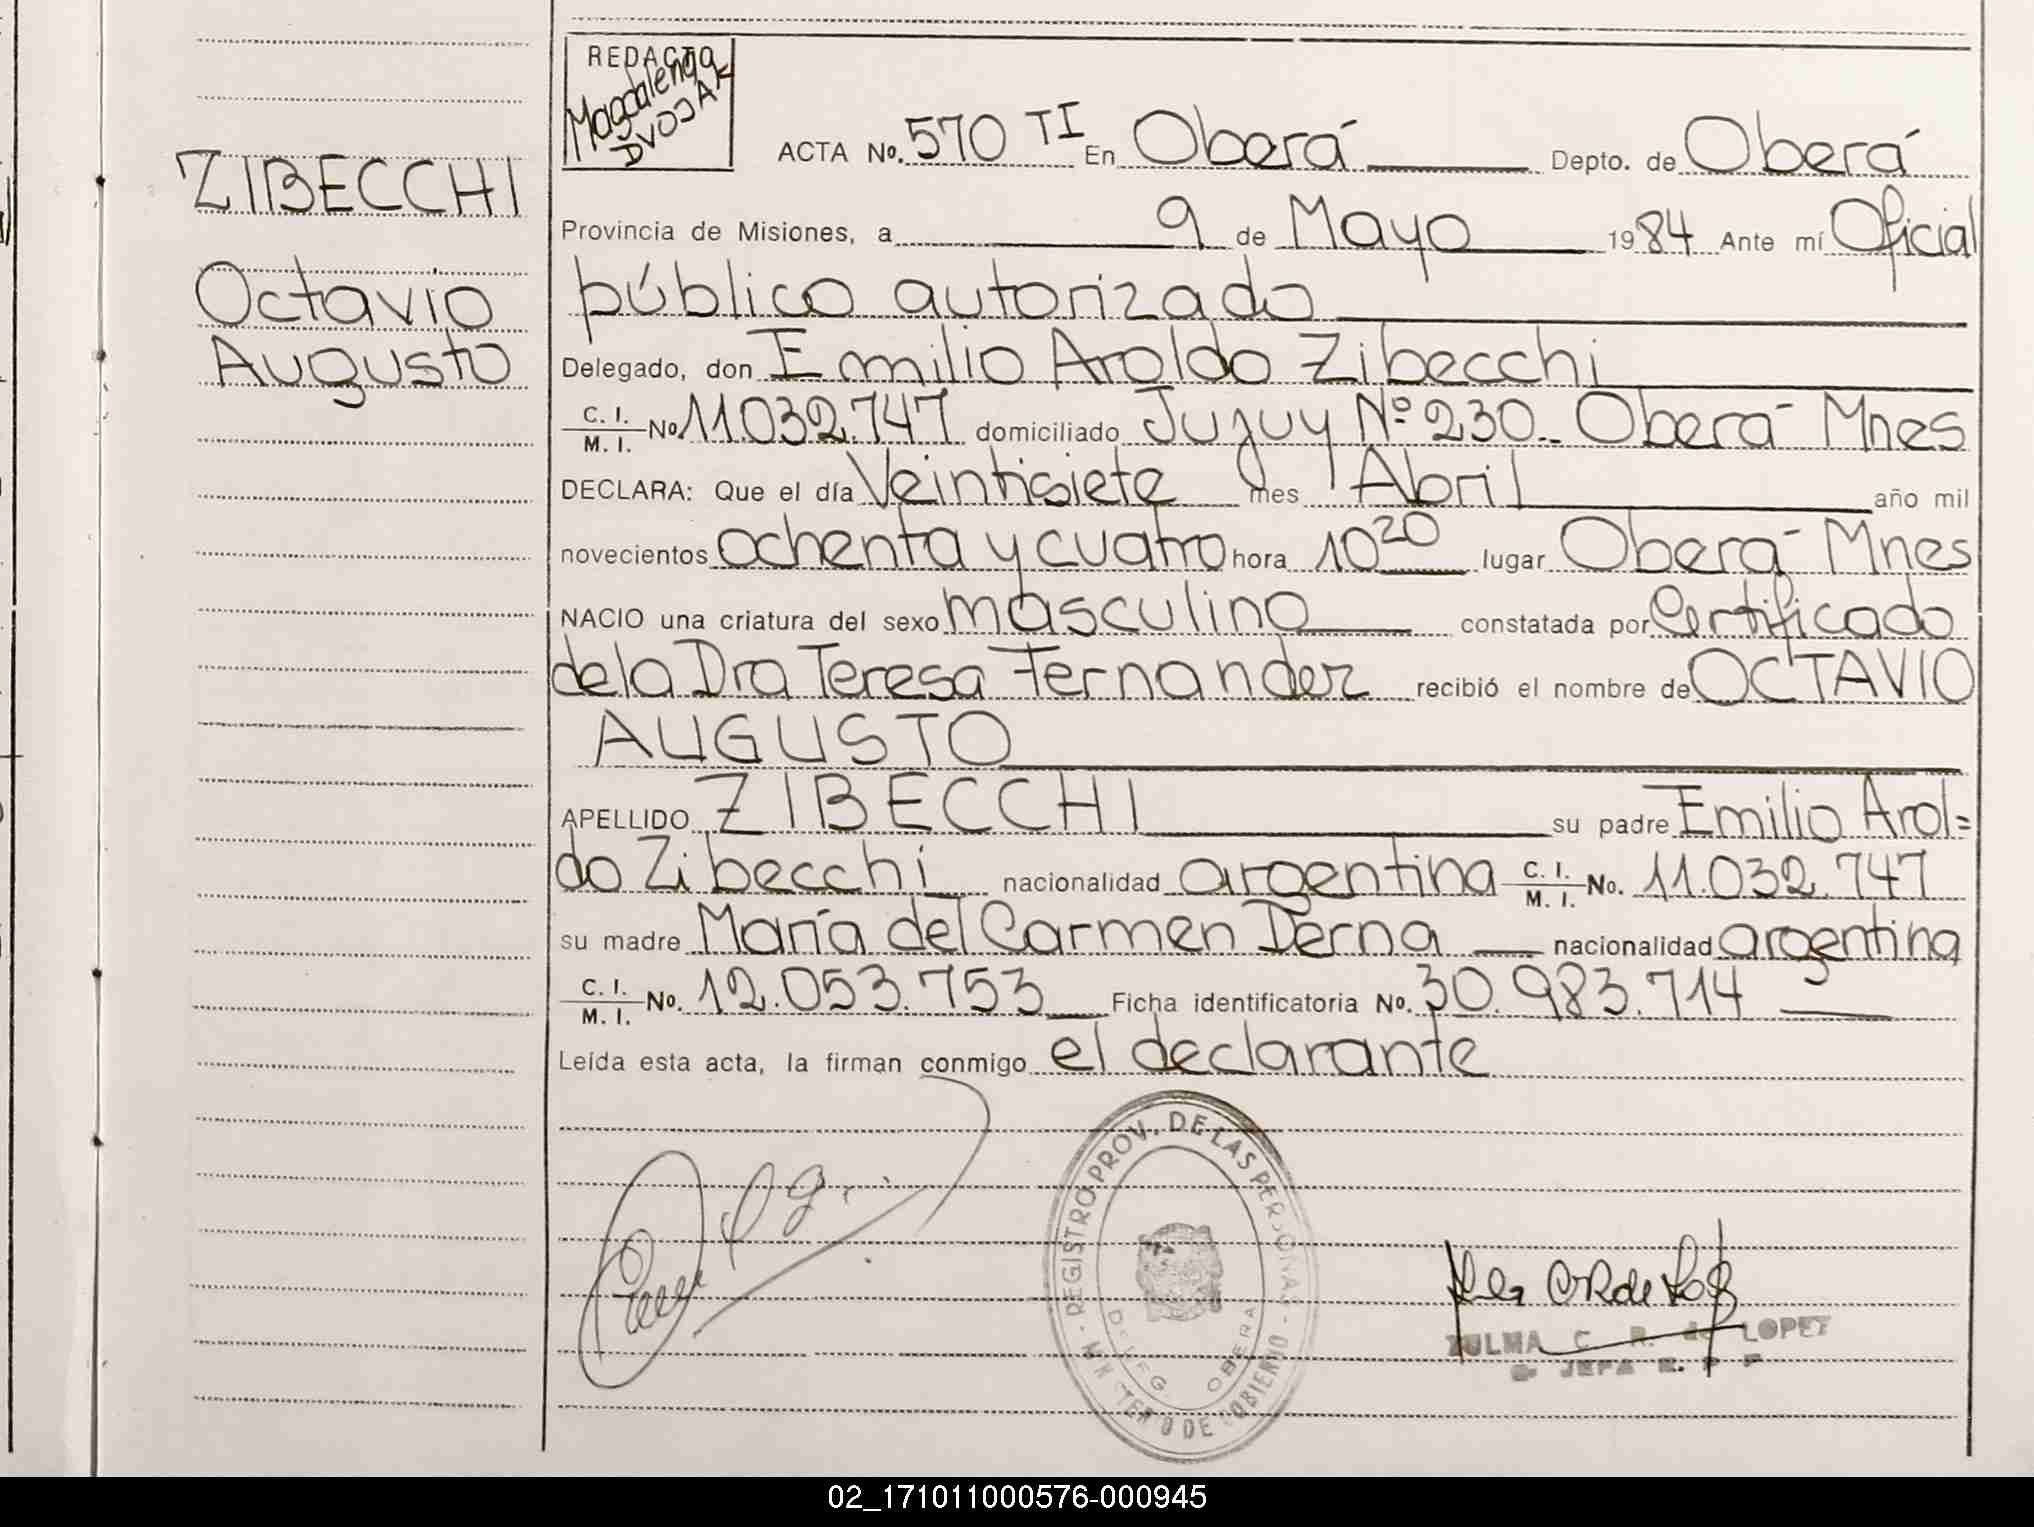 REDACTO
Magdalena
DVOJAK
ZIBECCHI
Octavio
Augusto
ACTA No. 570 TI En Oberá Depto. de Oberá
Provincia de Misiones, a 9 de Mayo 1984 Ante mí Oficial
público autorizado
Delegado, don Emilio Aroldo Zibecchi
C. I. / M. I. No 11.032.747 domiciliado Jujuy Nº 230.. Oberá Mnes
DECLARA: Que el día Veintisiete mes Abril año mil
novecientos ochenta y cuatro hora 10 20 lugar Oberá Mnes
NACIO una criatura del sexo masculino constatada por Certificado
de la Dra Teresa Fernandez recibió el nombre de OCTAVIO
AUGUSTO
APELLIDO ZIBECCHI su padre Emilio Arol=
do Zibecchi nacionalidad argentina C. I. / M. I. No. 11.032.747
su madre María del Carmen Derna nacionalidad argentina
C. I. / M. I. No. 12.053.753 Ficha identificatoria No. 30.983.714
Leída esta acta, la firman conmigo el declarante
REGISTRO PROV. DE LAS PERSONAS
DELEG. OBERA
MINISTERIO DE GOBIERNO
ZULMA C. R. de LOPEZ
JEFA R. P. P
02_171011000576-000945